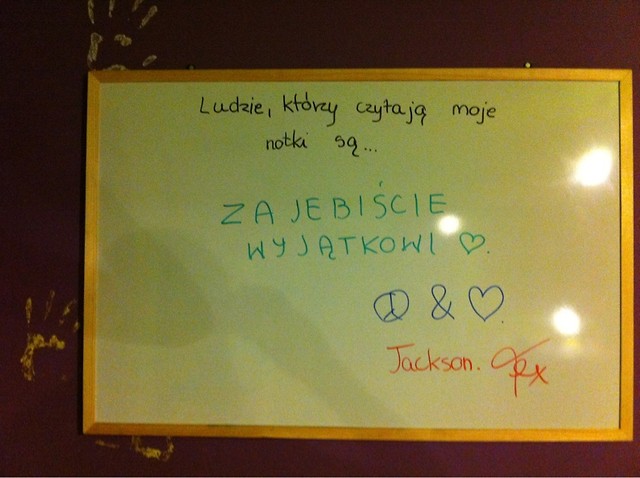 Ludzie, którzy czytają moje
notki są...
ZAJEBIŚCIE
WYJĄTKOWI ♡.
& ♡.
Jackson.